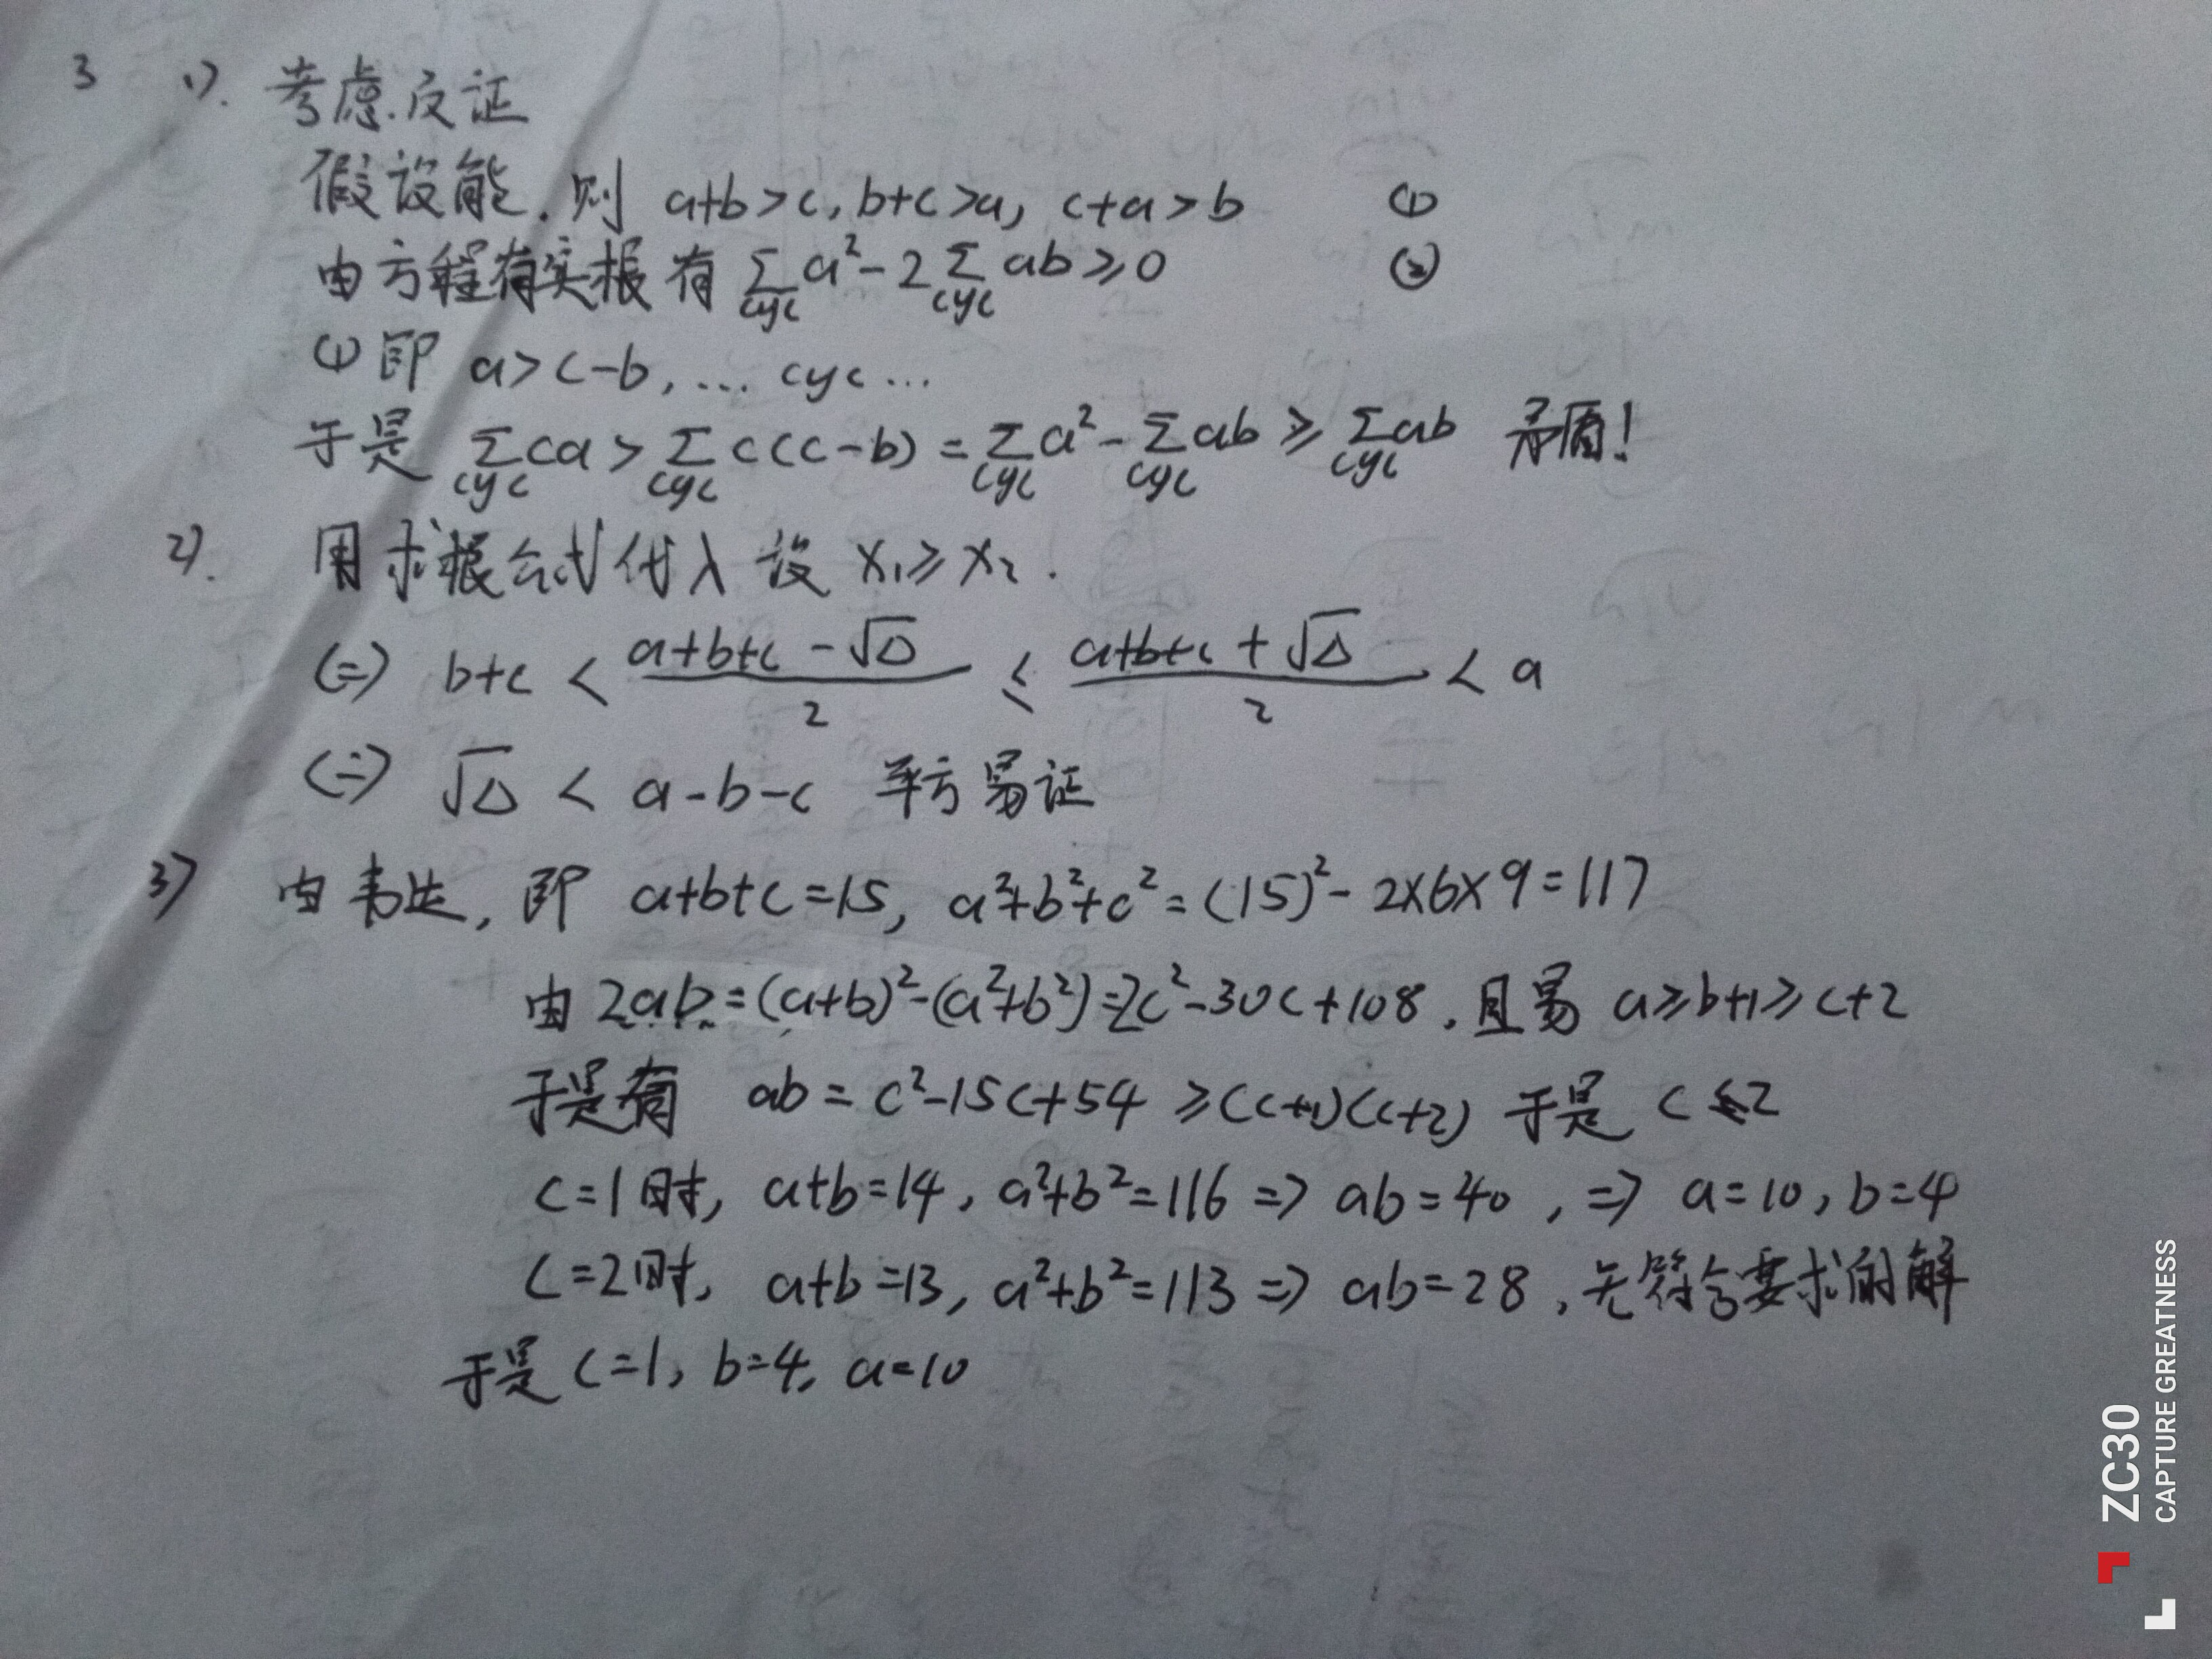 3 1). 考虑.反证
假设能.则 a+b>c, b+c>a, c+a>b ①
由方程有实根有 ∑cyc a²-2∑cyc ab≥0 ②
①即 a>c-b, ... cyc ...
于是 ∑cyc ca > ∑cyc c(c-b) = ∑cyc a²-∑cyc ab ≥ ∑cyc ab 矛盾!
2). 用求根公式代入 设 x₁≥x₂.
(=) b+c < (a+b+c-√Δ)/2 ≤ (a+b+c+√Δ)/2 < a
(=) √Δ < a-b-c 平方易证
3) 由韦达, 即 a+b+c=15, a²+b²+c²=(15)²-2×6×9=117
由 2ab=(a+b)²-(a²+b²)=2c²-30c+108, 且易 a≥b+1≥c+2
于是有 ab=c²-15c+54≥(c+1)(c+2) 于是 c≤2
c=1时, a+b=14, a²+b²=116 => ab=40, => a=10, b=4
c=2时, a+b=13, a²+b²=113 => ab=28, 无符合要求的解
于是 c=1, b=4, a=10
ZC30
CAPTURE GREATNESS